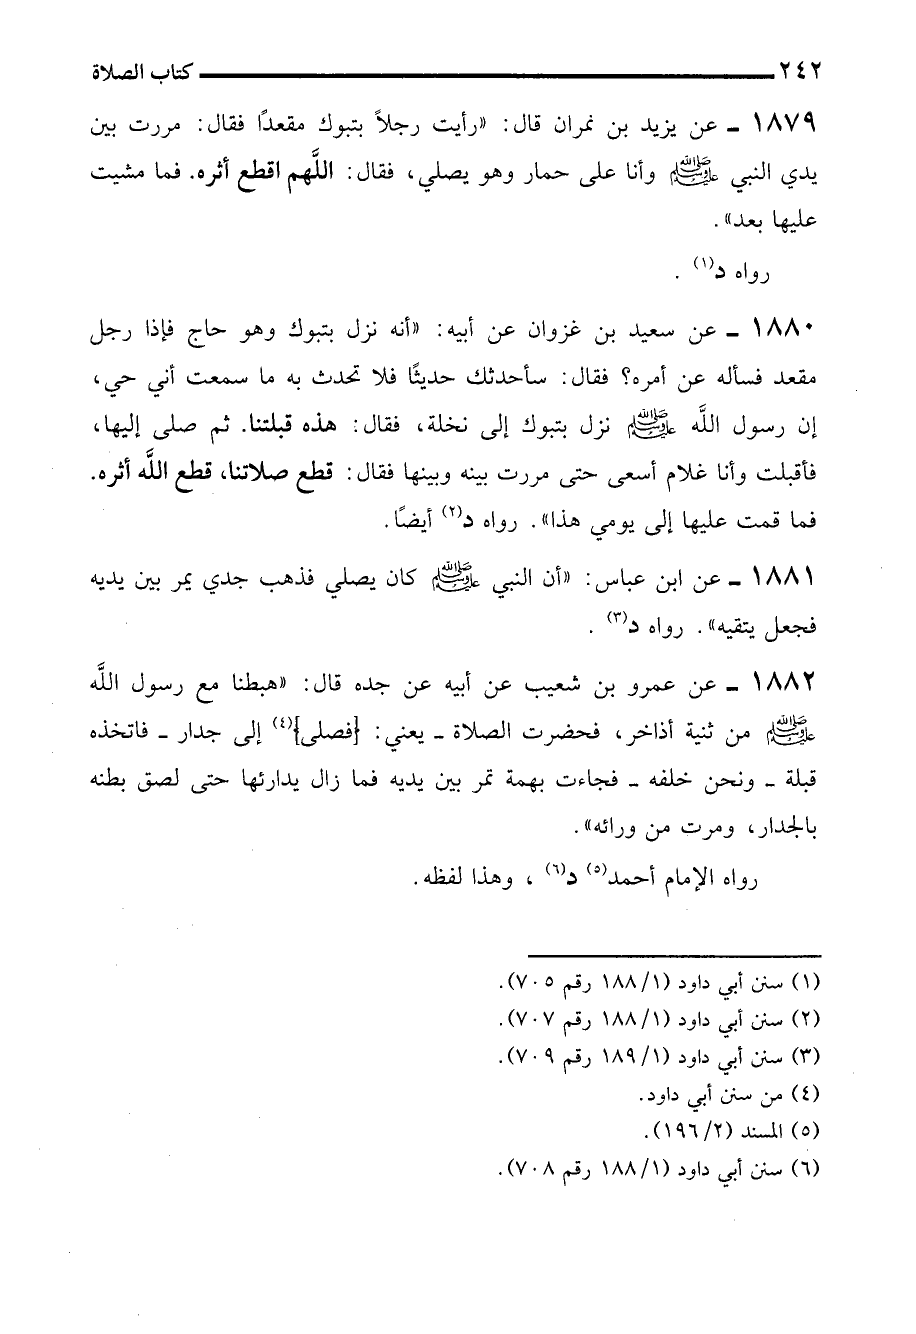 ٢٤٢ كتاب الصلاة
١٨٧٩ ـ عن يزيد بن نمران قال: «رأيت رجلاً بتبوك مقعدًا فقال: مررت بين
يدي النبي ﷺ وأنا على حمار وهو يصلي، فقال: اللَّهم اقطع أثره. فما مشيت
عليها بعد».
رواه د(١) .
١٨٨٠ ـ عن سعيد بن غزوان عن أبيه: «أنه نزل بتبوك وهو حاج فإذا رجل
مقعد فسأله عن أمره؟ فقال: سأحدثك حديثًا فلا تحدث به ما سمعت أني حي،
إن رسول اللَّه ﷺ نزل بتبوك إلى نخلة، فقال: هذه قبلتنا. ثم صلى إليها،
فأقبلت وأنا غلام أسعى حتى مررت بينه وبينها فقال: قطع صلاتنا، قطع اللَّه أثره.
فما قمت عليها إلى يومي هذا». رواه د(٢) أيضًا.
١٨٨١ ـ عن ابن عباس: «أن النبي ﷺ كان يصلي فذهب جدي يمر بين يديه
فجعل يتقيه». رواه د(٣) .
١٨٨٢ ـ عن عمرو بن شعيب عن أبيه عن جده قال: «هبطنا مع رسول اللَّه
ﷺ من ثنية أذاخر، فحضرت الصلاة ـ يعني: {فصلى}(٤) إلى جدار ـ فاتخذه
قبلة ـ ونحن خلفه ـ فجاءت بهمة تمر بين يديه فما زال يدارئها حتى لصق بطنه
بالجدار، ومرت من ورائه».
رواه الإمام أحمد(٥) د(٦) ، وهذا لفظه.
(١) سنن أبي داود (١/ ١٨٨ رقم ٧٠٥).
(٢) سنن أبي داود (١/ ١٨٨ رقم ٧٠٧).
(٣) سنن أبي داود (١/ ١٨٩ رقم ٧٠٩).
(٤) من سنن أبي داود.
(٥) المسند (٢/ ١٩٦).
(٦) سنن أبي داود (١/ ١٨٨ رقم ٧٠٨).